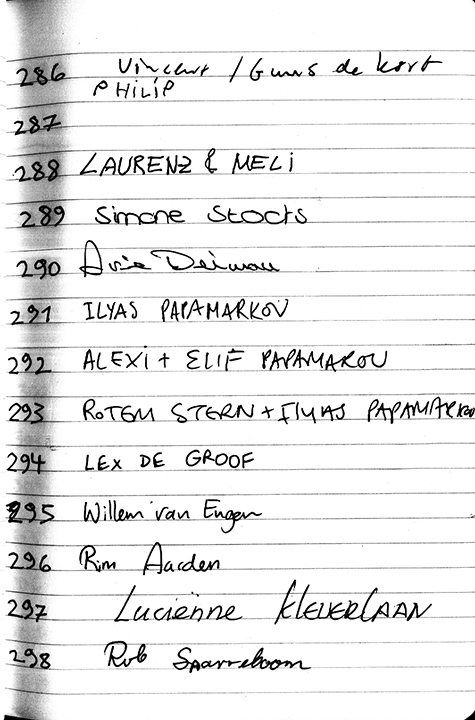 286 Vincent / Guus de kort
PHILIP
287
288 LAURENZ & MELI
289 Simone Stocks
290
291 ILYAS PAPAMARKOU
292 ALEXI + ELIF PAPAMAROU
293 ROTEM STERN + ILYAS PAPAMARKOU
294 LEX DE GROOF
295 Willem van Engen
296 Rim Aarden
297 Lucienne KLEVERLAAN
298 Rob Spaarreboom